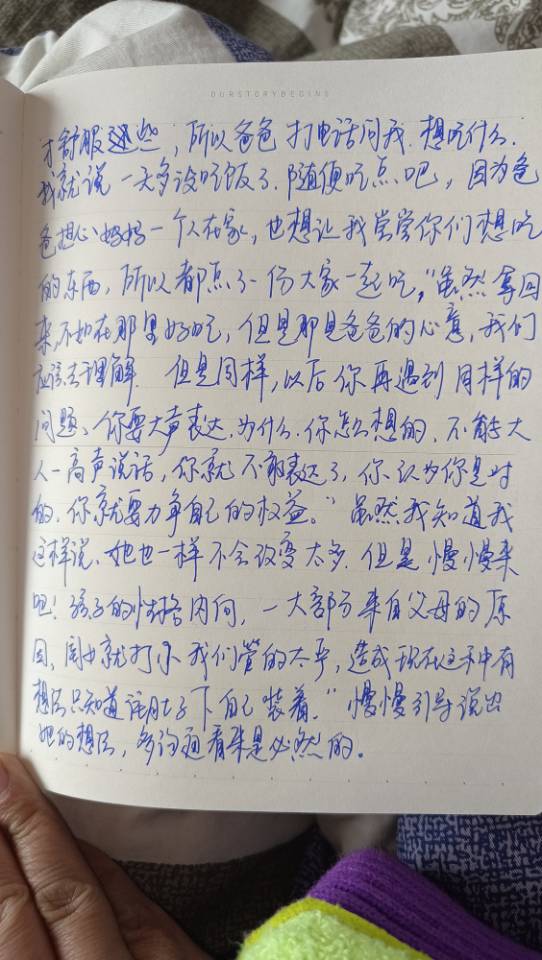 OURSTORYBEGINS
才舒服这些，所以爸爸打电话问我.想吃什么.
我就说一天多没吃饭了.随便吃点吧，因为爸
爸担心妈妈一个人在家，也想让我尝尝你们想吃
的东西，所以都点了一份大家一起吃，“虽然拿回
来,不如在那里好吃，但是那是爸爸的心意，我们
应该去理解.但是同样，以后你再遇到同样的
问题、你要大声表达.为什么.你怎么想的.不能大
人一高声说话，你就不敢表达了，你认为你是对
的.你就要力争自己的权益。”虽然我知道我
这样说、她也一样不会改变太多.但是慢慢来
吧！孩子的性格内向，一大部分来自父母的原
因，就打小我们管的太严，造成现在这种有
想法只知道往肚子下自己装着.”慢慢引导说出
她的想法，多沟通看来是必然的。